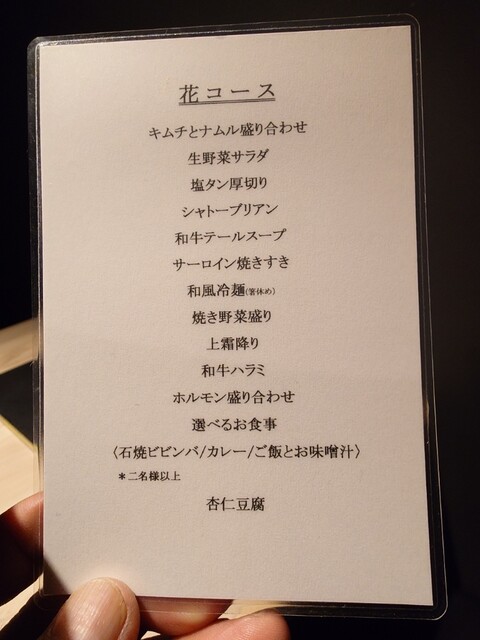 花コース
キムチとナムル盛り合わせ
生野菜サラダ
塩タン厚切り
シャトーブリアン
和牛テールスープ
サーロイン焼きすき
和風冷麺(箸休め)
焼き野菜盛り
上霜降り
和牛ハラミ
ホルモン盛り合わせ
選べるお食事
〈石焼ビビンバ/カレー/ご飯とお味噌汁〉
＊二名様以上
杏仁豆腐